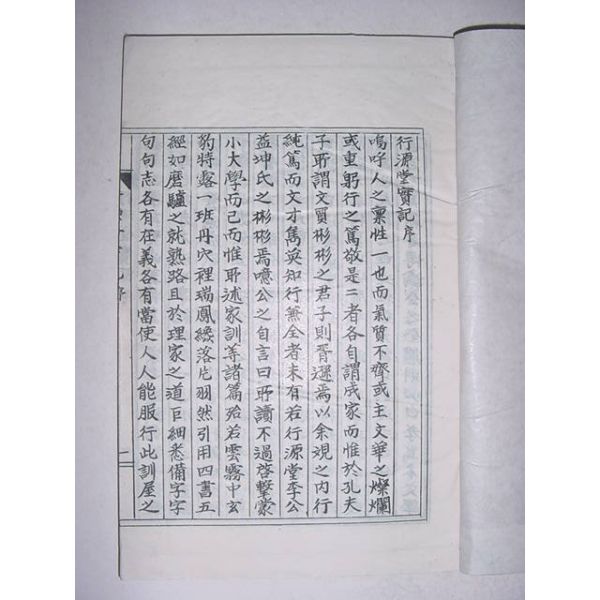 行源堂實記序
嗚呼人之稟性一也而氣質不齊或主文華之燦爛
或重躬行之篤敬是二者各自謂成家而惟於孔夫
子所謂文質彬彬之君子則胥遜焉以余覌之內行
純篤而文才雋英知行兼全者未有若行源堂李公
益坤氏之彬彬焉噫公之自言曰所讀不過啓擊蒙
小大學而已而惟所述家訓等諸篇殆若雲霧中玄
豹特露一班丹穴裡瑞鳳纔落片羽然引用四書五
經如磨驢之就熟路且於理家之道巨細悉備字字
句句志各有在義各有當使人人能服行此訓屋之